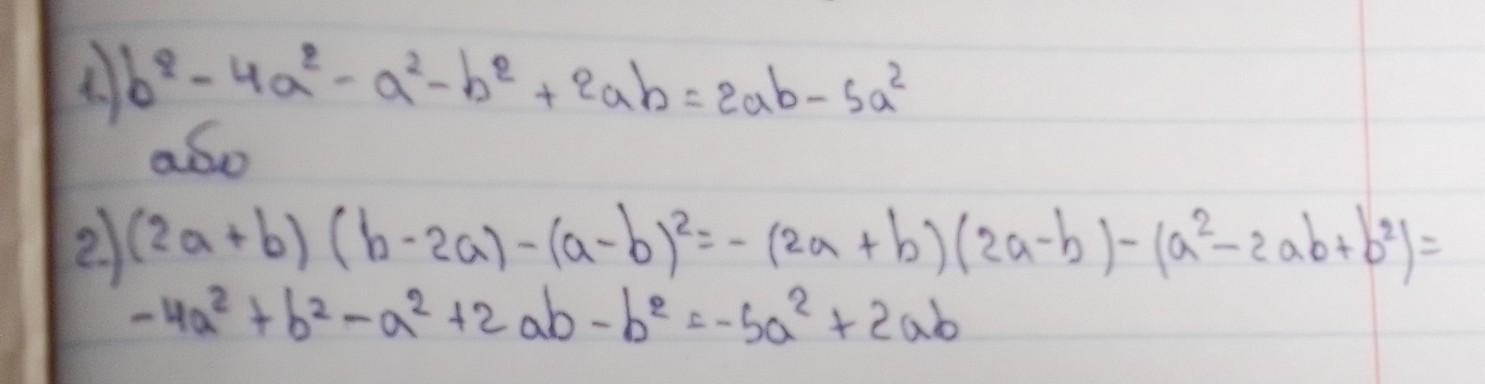 1.) b² - 4a² - a² - b² + 2ab = 2ab - 5a²
або
2.) (2a + b) (b - 2a) - (a - b)² = - (2a + b) (2a - b) - (a² - 2ab + b²) =
- 4a² + b² - a² + 2ab - b² = - 5a² + 2ab